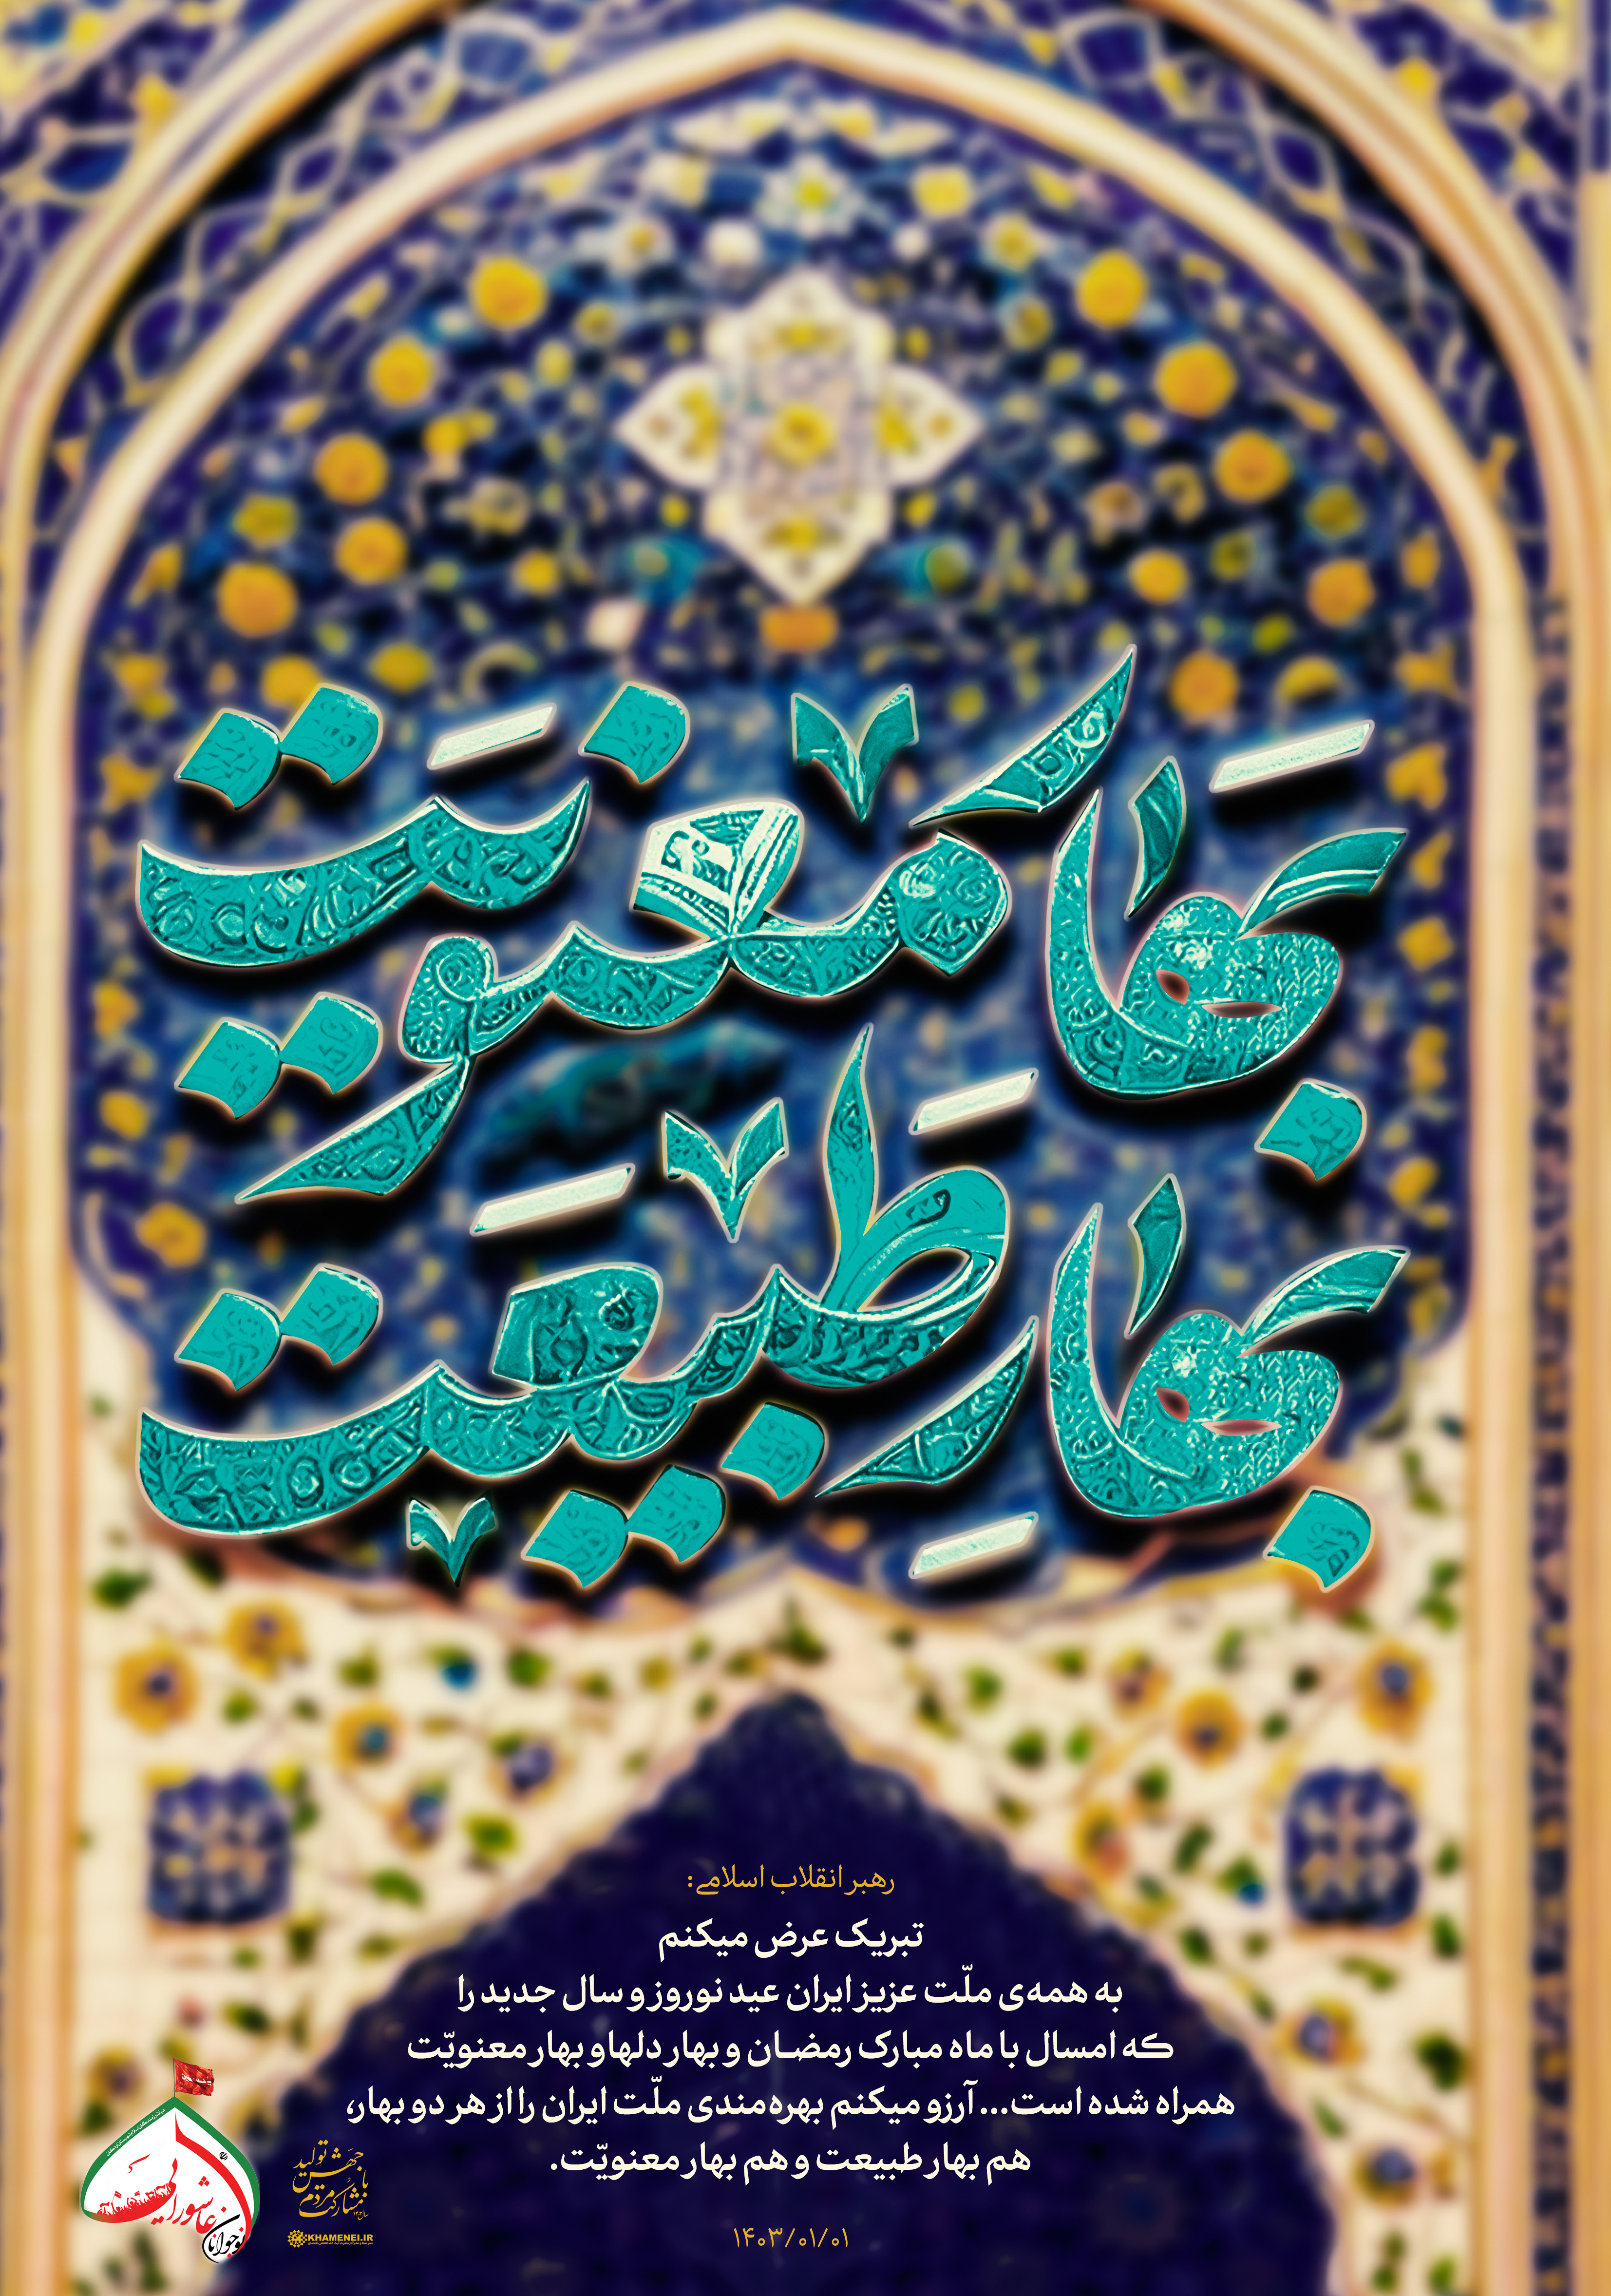 بهار معنویّت
بهار طبیعت
رهبر انقلاب اسلامی:
تبریک عرض میکنم
به همه‌ی ملّت عزیز ایران عید نوروز و سال جدید را
که امسال با ماه مبارک رمضـان و بهار دلها و بهار معنویّت
همراه شده است... آرزو میکنم بهره‌مندی ملّت ایران را از هر دو بهار،
هم بهار طبیعت و هم بهار معنویّت.
۱۴۰۳/۰۱/۰۱
جهش تولید
با
مشارکت مردم
KHAMENEI.IR
نوجوانان عاشورایی